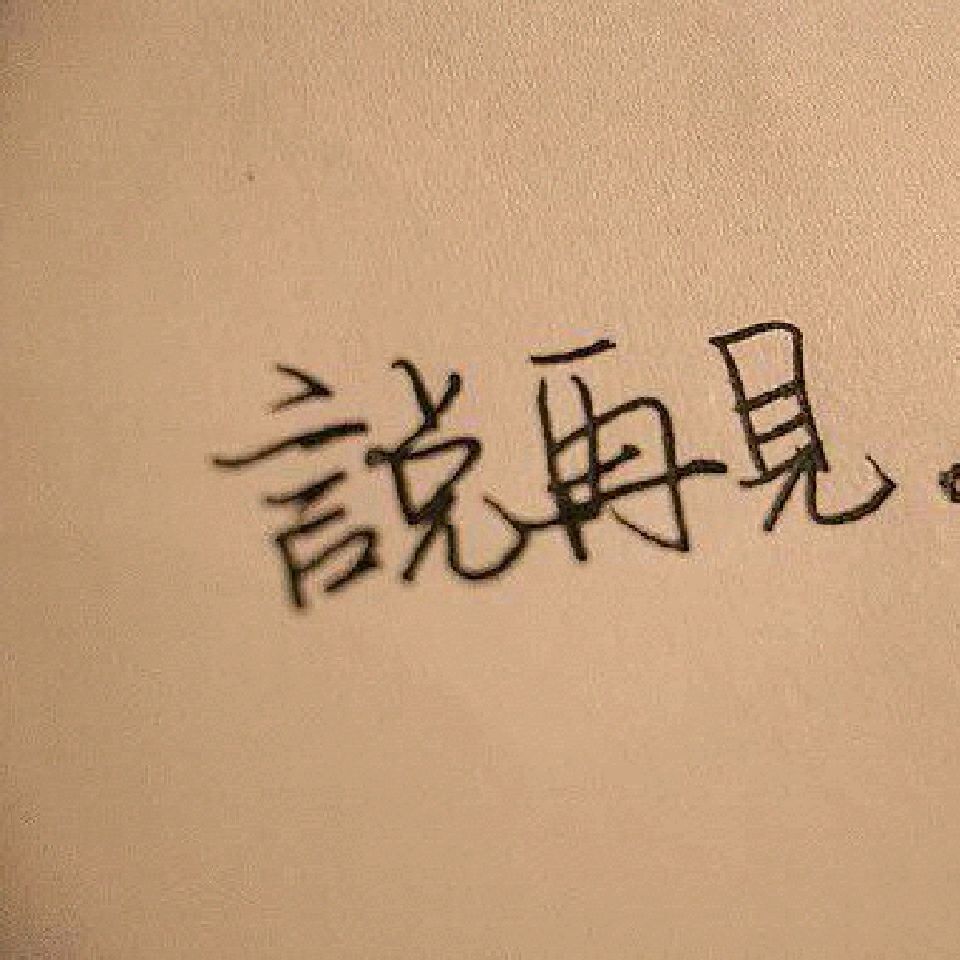 說再見。